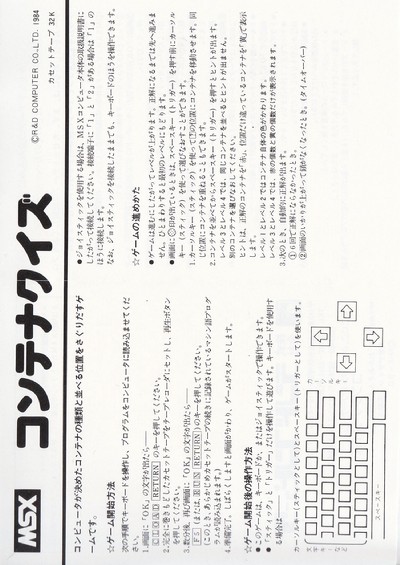 MSX コンテナクイズ
©R&D COMPUTER CO.,LTD. 1984
カセットテープ 32K
コンピュータが決めたコンテナの種類と並べる位置をさぐりだすゲ
ームです。
☆ゲーム開始方法
次の手順でキーボードを操作し、プログラムをコンピュータに読み込ませてくだ
さい。
1.画面に「OK」の文字が出たら──
CLOAD RETURN のキーを押してください。
2.完全に巻きもどしたカセットテープをレコーダにセットし、再生ボタン
を押してください。
3.数分後、再び画面に「OK」の文字が出たら──
F5 (または RUN RETURN)のキーを押してください。
(このとき、あらかじめカセットテープの続きに記録されているマシン語プログ
ラムが読み込まれます。)
4.準備完了。しばらくしますと画面がかわり、ゲームがスタートします。
☆ゲーム開始後の操作方法
●このゲームは、キーボードか、またはジョイスティックで操作できます。
●「スティック」と「トリガー」だけを操作して遊びます。キーボードを使用す
る場合は
カーソルキー(スティックとして)とスペースキー(トリガーとして)を使います。
スペースキー
カーソルキー
●ジョイスティックを使用する場合は、MSXコンピュータ本体の取扱説明書に
したがって接続してください。接続端子に「1」と「2」がある場合は「1」の
ほうに接続します。
なお、ジョイスティックを接続したままでも、キーボードのほうを操作できます。
☆ゲームの進めかた
●ゲームは進行にしたがってレベルが上がります。正解になるまでは先へ進みま
せん。ひとまわりすると最初のレベルにもどります。
●画面に 印が出ているときは、スペースキー(トリガー)を押す前にカーソル
キー(スティック)を使って選びなおすことができます。
1.カーソルキー(スティック)を使って の位置にコンテナを移動させます。同
じ位置にコンテナを重ねることもできます。
2.コンテナを並べてからスペースキー(トリガー)を押すとヒントが出ます。
レベル3とレベル4では、同じコンテナを並べるとヒントが出ません。
別のコンテナを選びなおしてください。
ヒントは、正解のコンテナを「赤」、位置だけ違っているコンテナを「黄」で表示
します。
レベル1とレベル2ではコンテナ自体の色がかわります。
レベル3とレベル4では、赤の個数と黄の個数だけが表示されます。
3.次のとき、自動的に正解が出ます。
①6回で正解にならなかったとき。
②画面のいかりが上がって鎖がなくなったとき。(タイムオーバー)